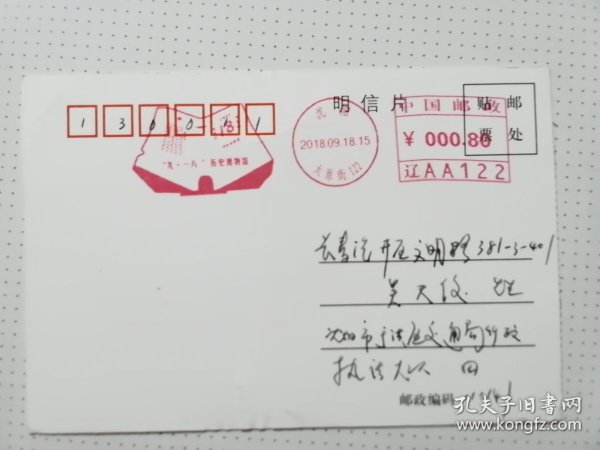 明信片
贴 邮
票 处
1 3 0 0 1 1
"九·一八"历史博物馆
沈阳
2018.09.18.15
太原街121
中国邮政
¥ 000.80
辽AA122
长春汽开区文明路381-3-401
吴天
沈阳市于洪区交通局行政
执法大队 田
邮政编码
孔夫子旧书网
www.kongfz.com